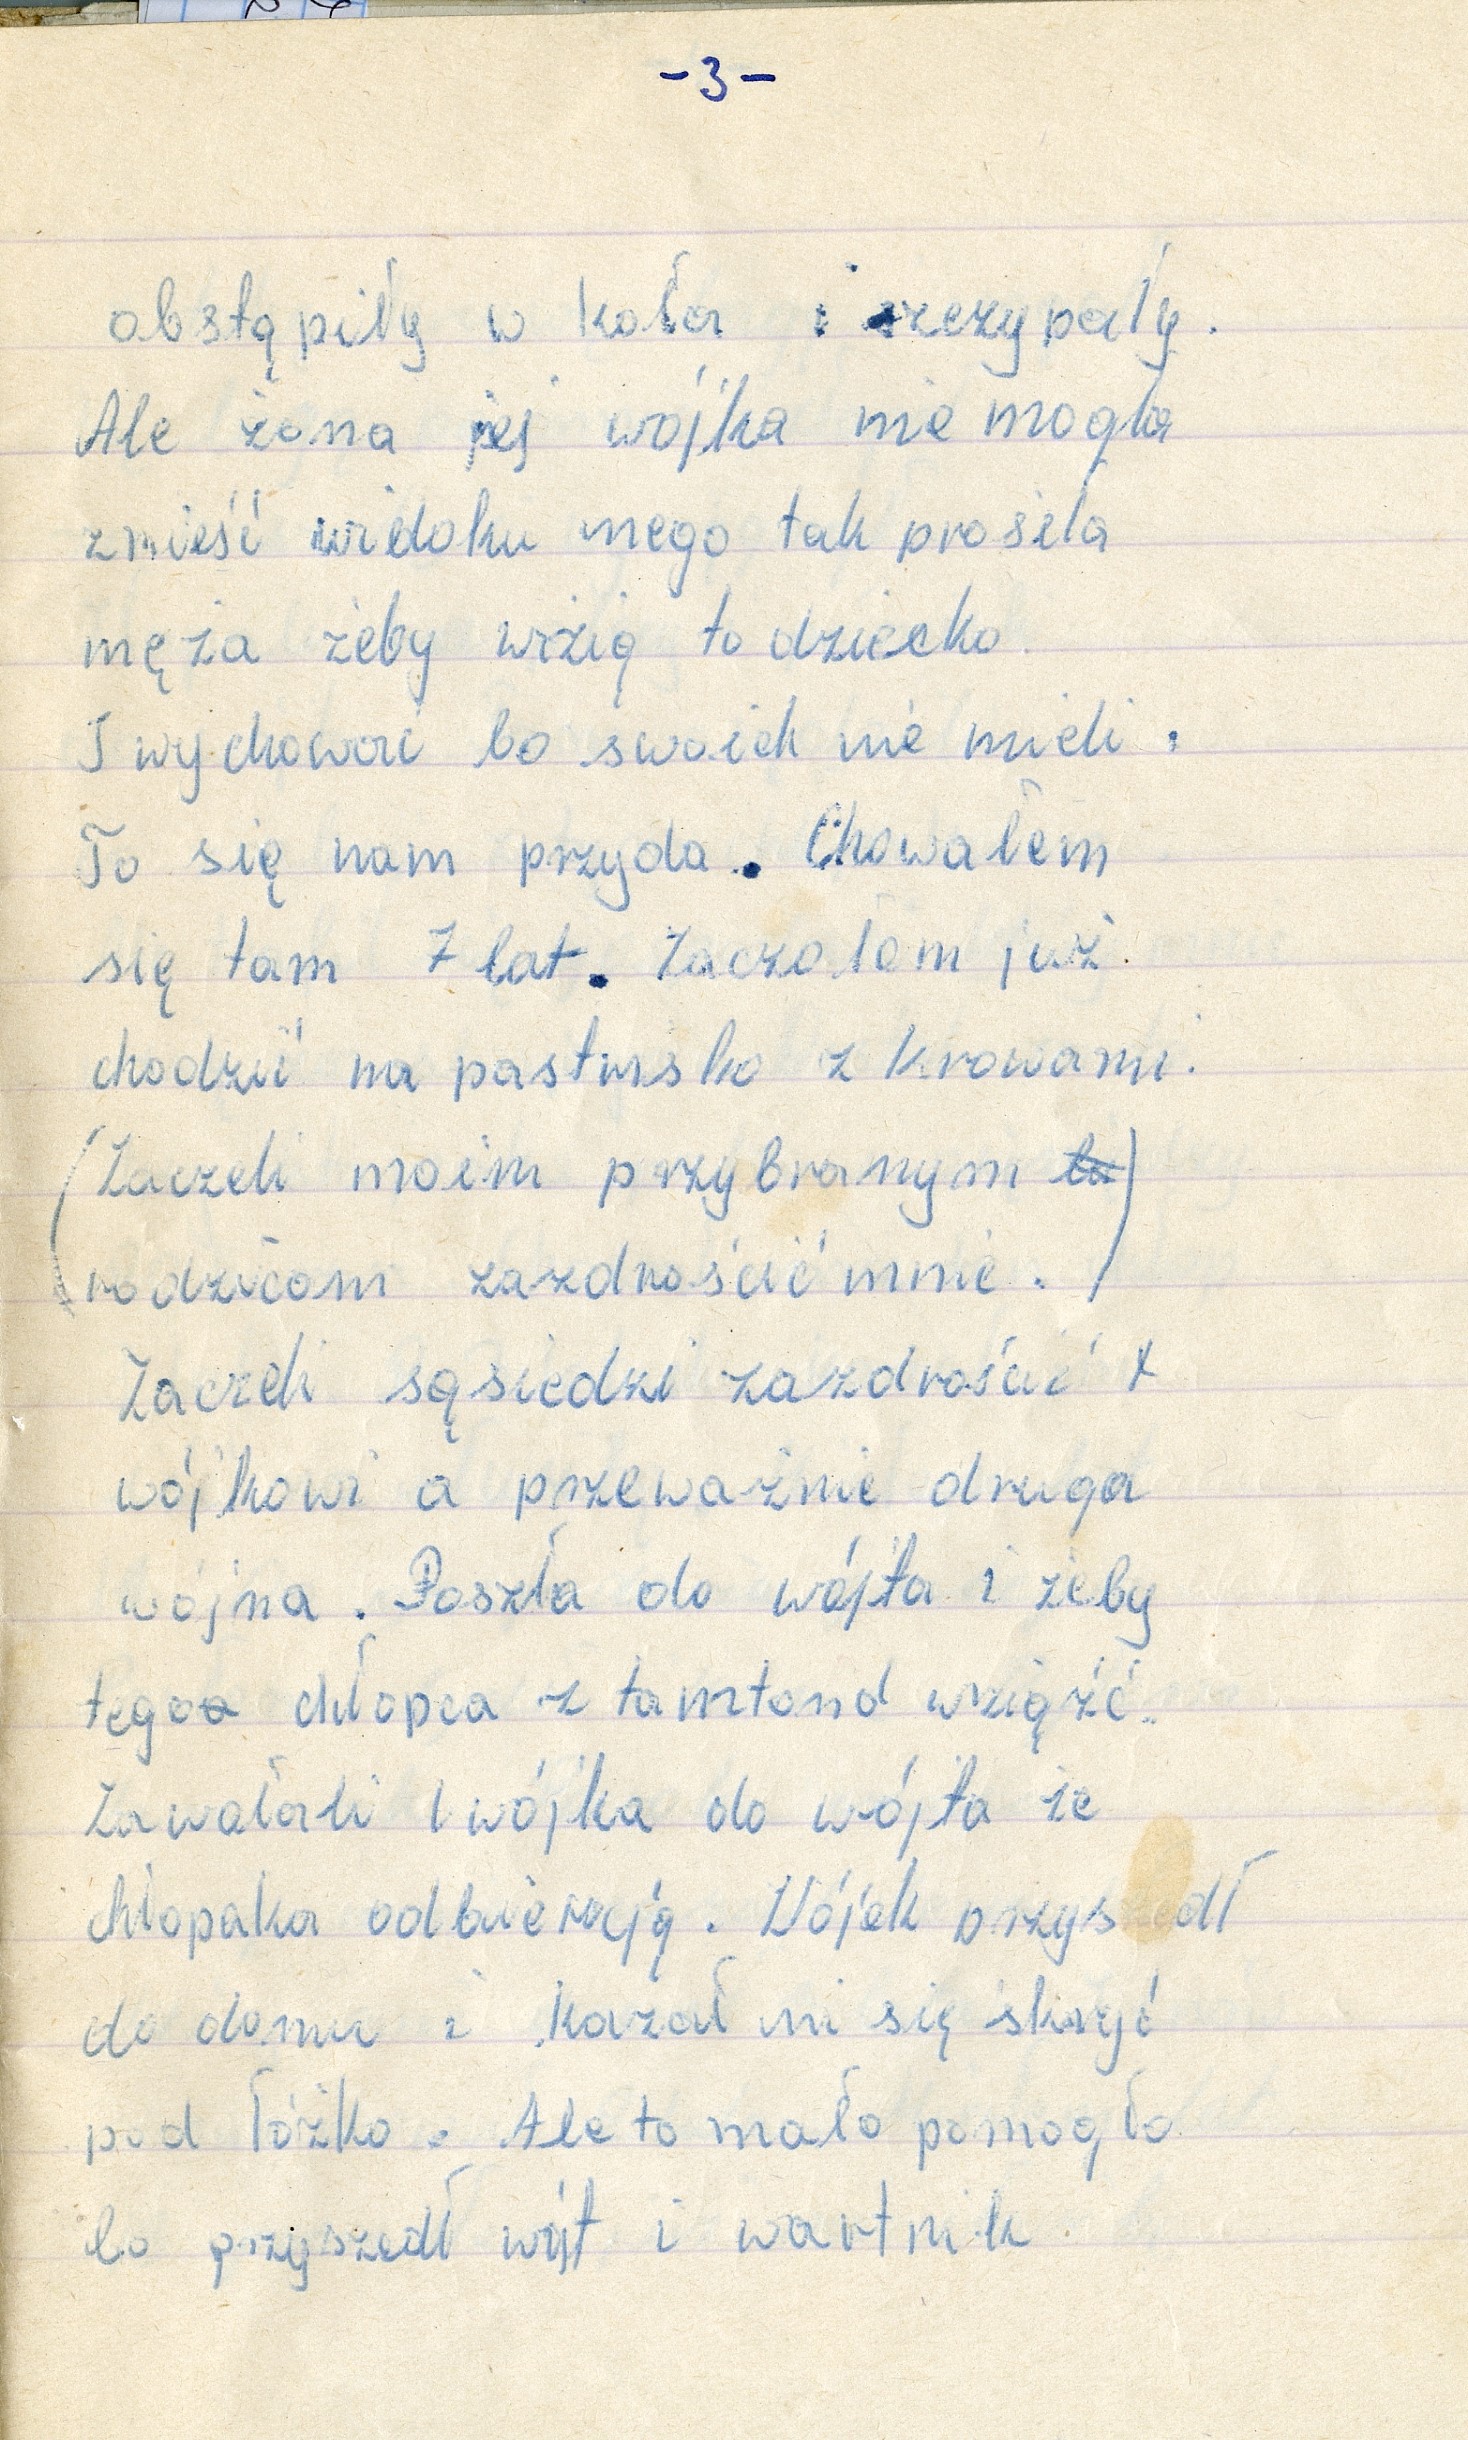 -3-
obstąpiły w koła i szczypały.
Ale żona jej wójka nie mogła
znieść widoku mego tak prosiła
męża żeby wzią to dziecko.
I wychować bo swoich nie mieli.
To się nam przyda. Chowałem
się tam 7 lat. Zaczołem już
chodzić na pastwisko z krowami.
(Zaczeli moim przybranym
rodzicom zazdrościć mnie.)
Zaczeli sąsiedzi zazdrościć
wójkowi a przeważnie druga
wójna. Poszła do wójta i żeby
tego chłopca z tamtond wziąźć.
Zawołali wójka do wójta że
chłopaka odbierają. Wójek przyszedł
do domu i kazał mi się skryć
pod łóżko. Ale to mało pomogło
bo przyszedł wójt i wartnik